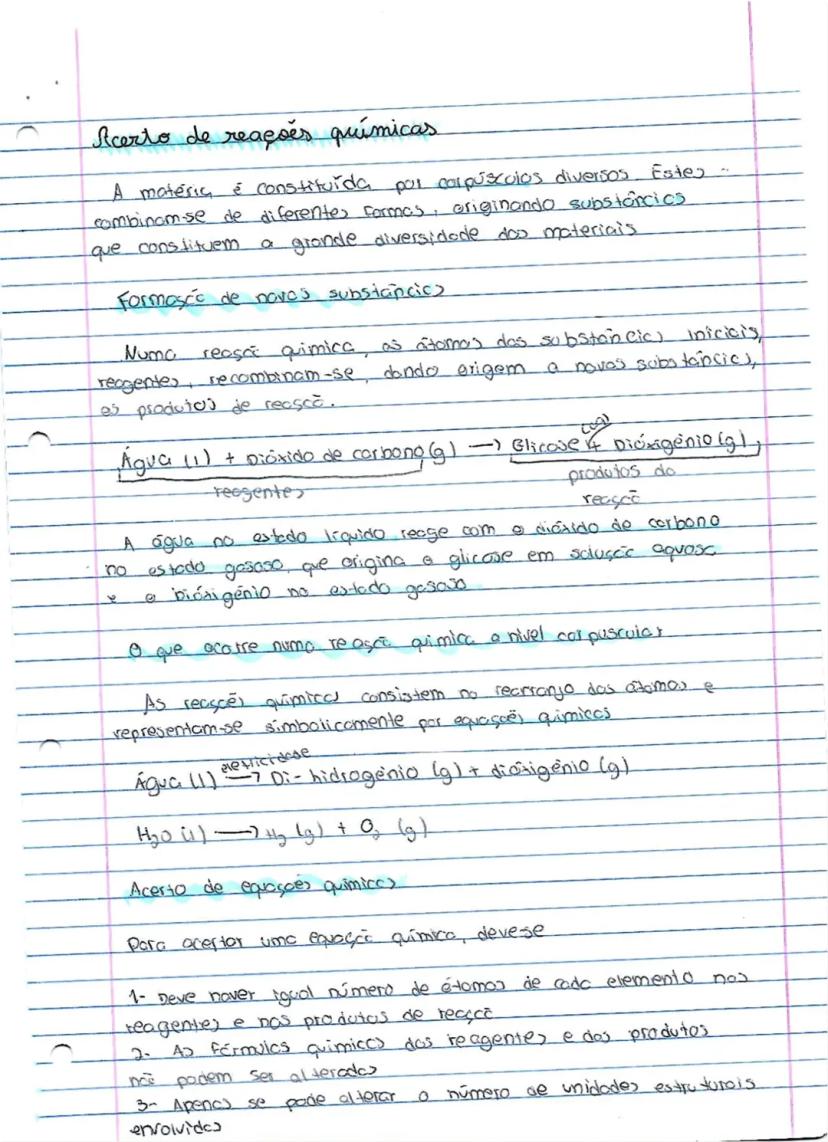 Acerto de reações químicas
A matéria é constituída por corpúsculos diversos. Estes
combinam-se de diferentes formas, originando substâncias
que constituem a grande diversidade dos materiais
Formação de novas substâncias
Numa reação química, os átomos das substâncias iniciais,
reagentes, recombinam-se, dando origem a novas substâncias,
os produtos de reação.
(aq)
Água (l) + Dióxido de carbono (g) → Glicose + Dióxigénio (g)
reagentes
produtos da
reação
A água no estado líquido reage com o dióxido de carbono
no estado gasoso, que origina a glicose em solução aquosa
e o Dióxigénio no estado gasoso
O que ocorre numa reação química a nível corpuscular
As reações químicas consistem no rearranjo dos átomos e
representam-se simbolicamente por equações químicas
eletricidade
Água (l) → Di-hidrogénio (g) + dioxigénio (g)
H₂O (l) → H₂ (g) + O₂ (g)
Acerto de equações químicas
Para acertar uma equação química, deve-se
1- Deve haver igual número de átomos de cada elemento nos
reagentes e nos produtos de reação
2- As fórmulas químicas dos reagentes e dos produtos
não podem ser alteradas
3- Apenas se pode alterar o número de unidades estruturais
envolvidas